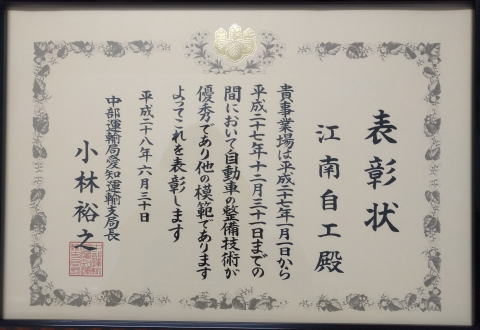 表彰状
江南自工殿
貴事業場は平成二十七年一月一日から
平成二十七年十二月三十一日までの
間において自動車の整備技術が
優秀であり他の模範であります
よってこれを表彰します
平成二十八年六月三十日
中部運輸局愛知運輸支局長
小林裕之